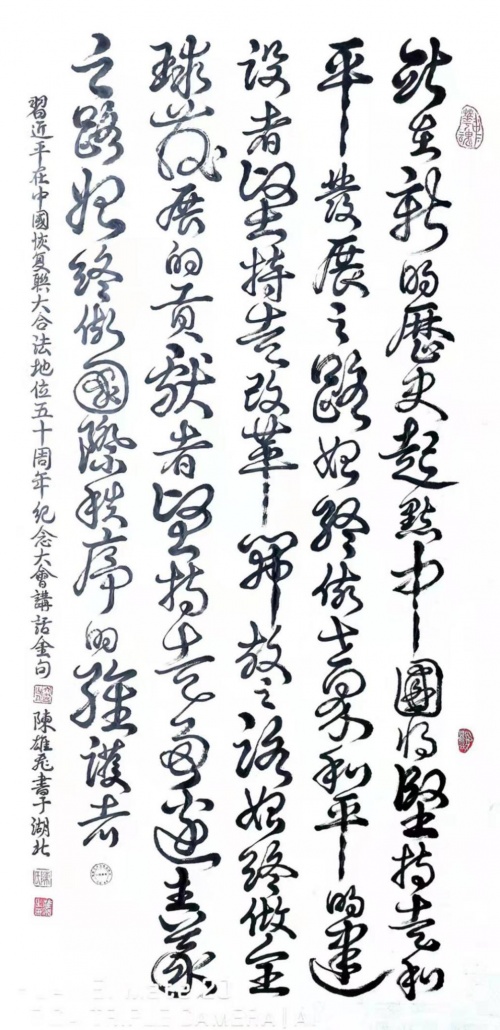 站在新的歷史起點中國將堅持走和
平發展之路始終做世界和平的建
設者堅持走改革開放之路始終做全
球發展的貢獻者堅持走多邊主義
之路始終做國際秩序的維護者
習近平在中國恢复聯大合法地位五十周年纪念大會講話金句 陳雄飛書于湖北
TRIPLE CAMERA